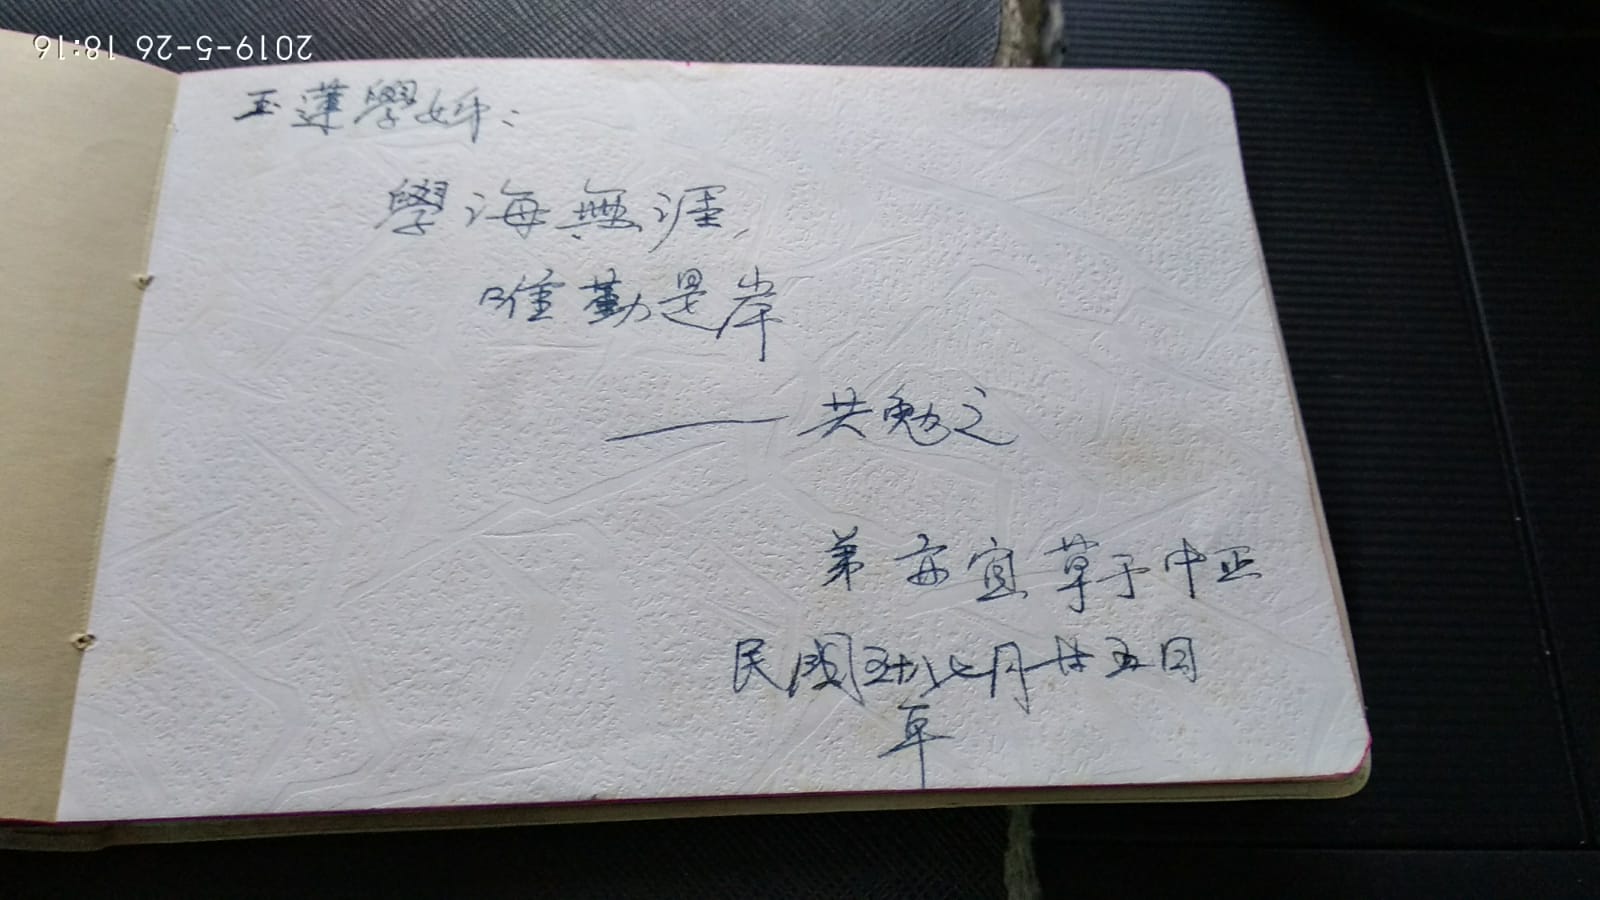 2019-5-26 18:16
玉蓮學姊：
學海無涯，
唯勤是岸
——共勉之
弟 亦宜 草于中正
民國五十八七月廿五日
年